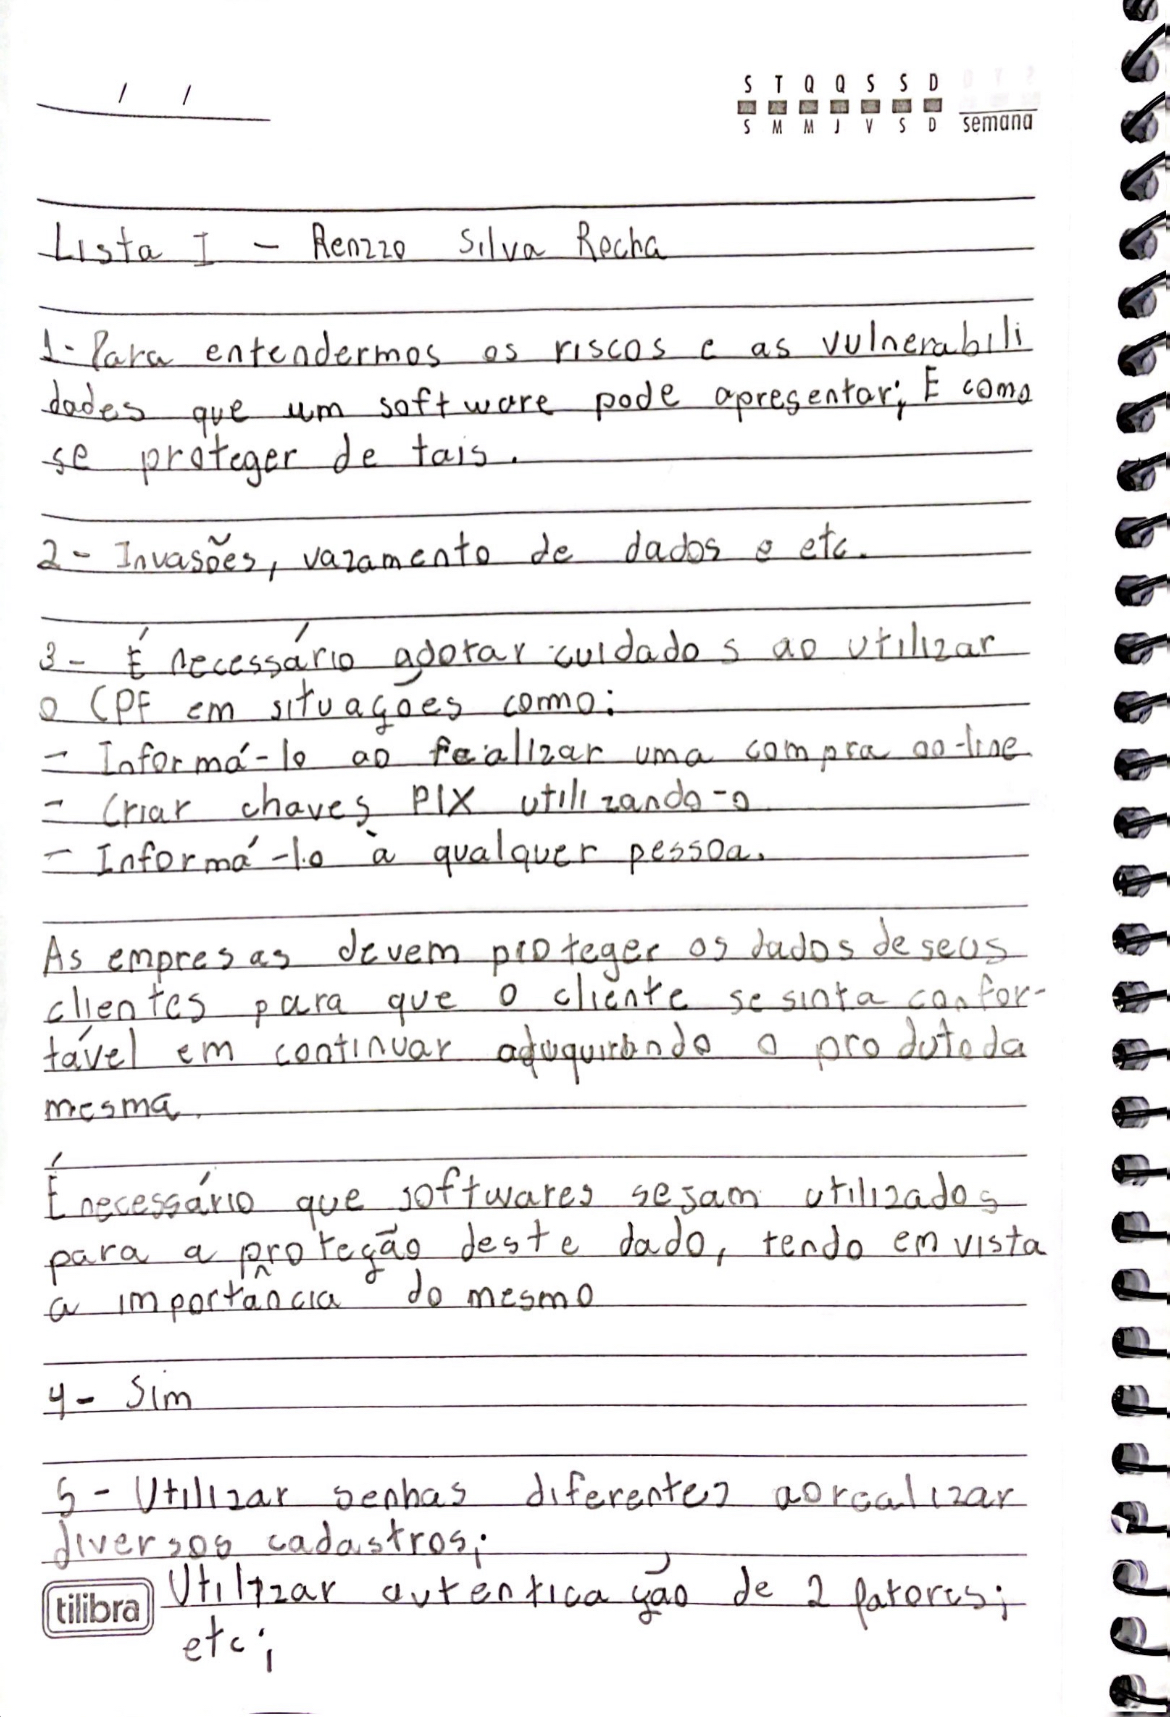 / /
S T Q Q S S D
S M M J V S D semana
Lista I - Renzzo Silva Rocha
1- Para entendermos os riscos e as vulnerabili
dades que um software pode apresentar; E como
se proteger de tais.
2- Invasões, vazamento de dados e etc.
3- É necessário adotar cuidados ao utilizar
o CPF em situações como:
- Informá-lo ao realizar uma compra on-line
- Criar chaves PIX utilizando-o
- Informá-lo à qualquer pessoa.
As empresas devem proteger os dados de seus
clientes para que o cliente se sinta confor-
tável em continuar aduquirindo o produto da
mesma.
É necessário que softwares sejam utilizados
para a proteção deste dado, tendo em vista
a importância do mesmo
4- Sim
5- Utilizar senhas diferentes ao realizar
diversos cadastros;
Utilizar autenticação de 2 fatores;
etc;
tilibra